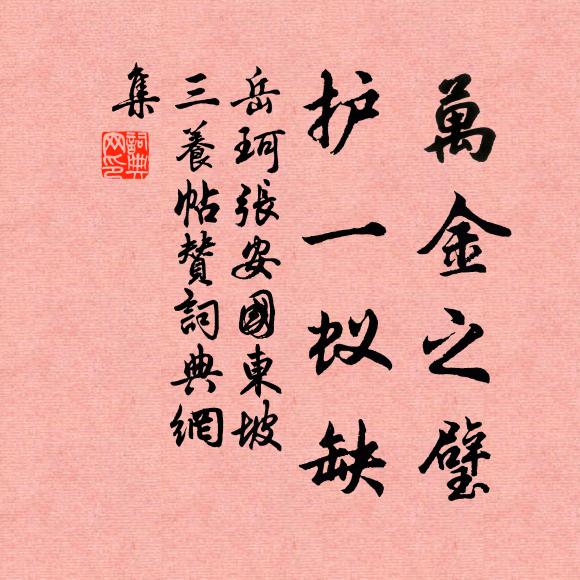 萬金之璧
护一蚁缺
岳珂張安國東坡
三養帖贊詞典網
集
詞典
网印